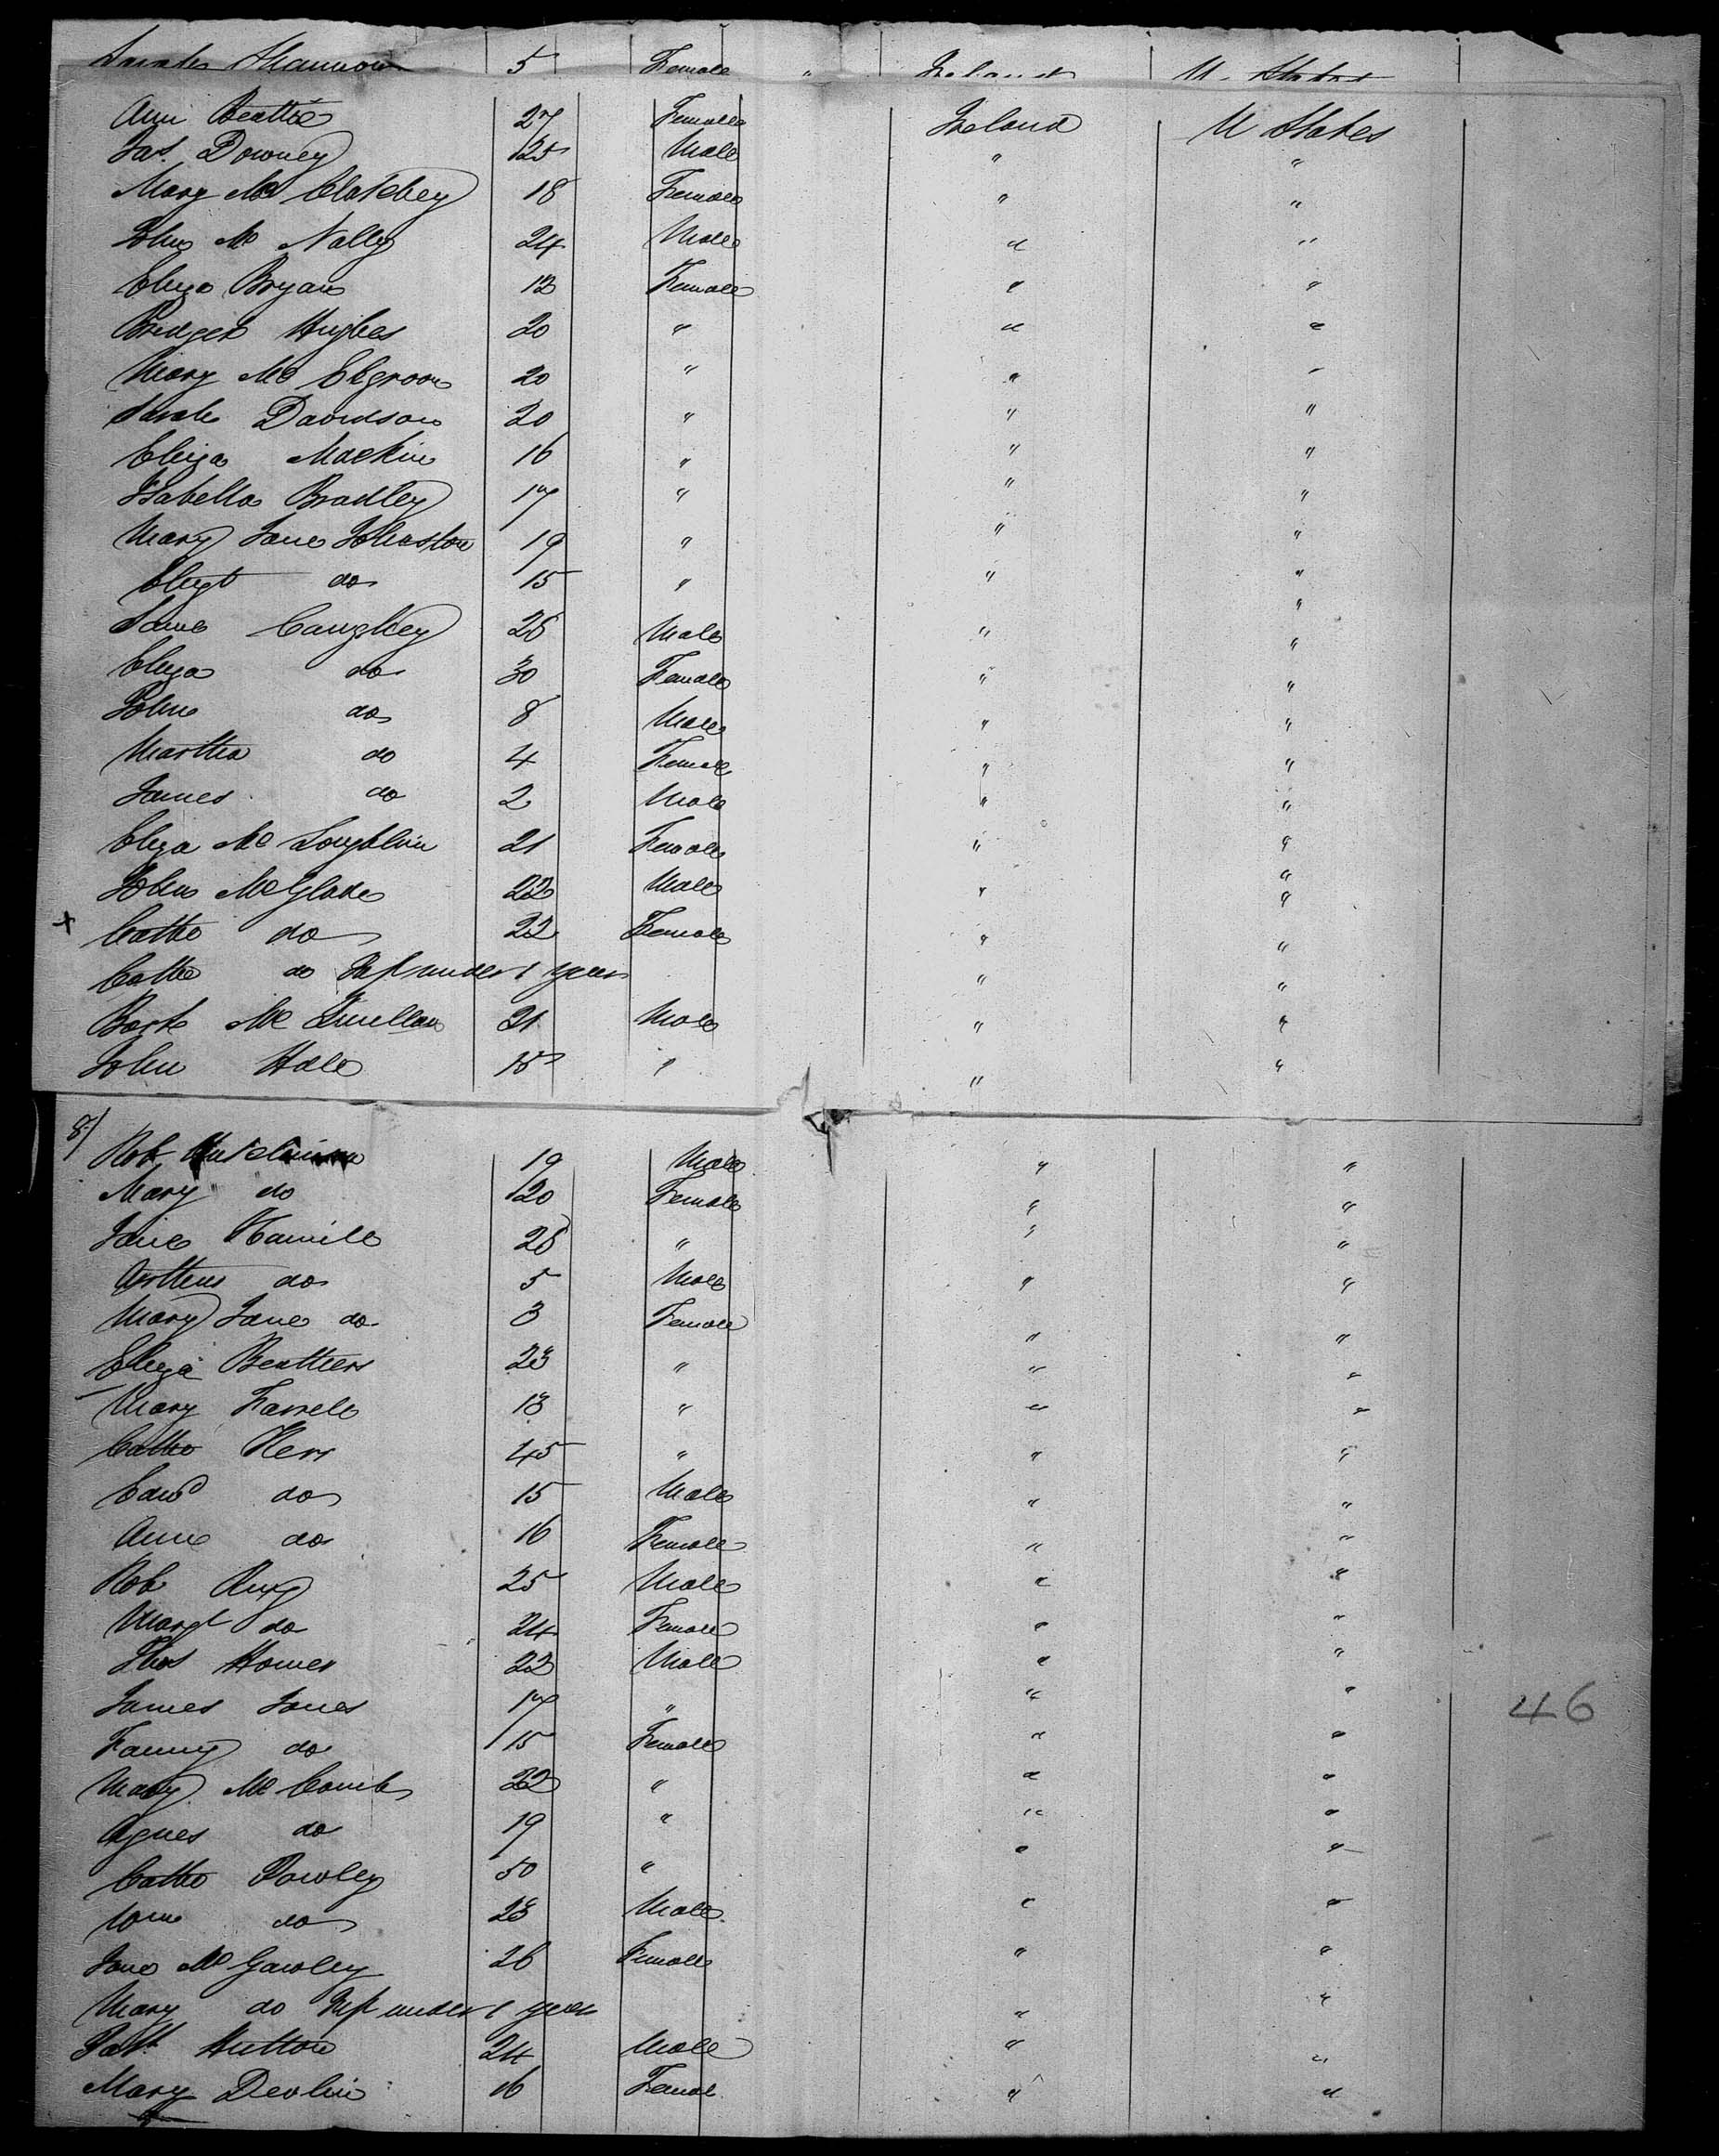 Sarah Shannon 5 Female " Ireland U. States
Ann Beattie 27 Female Ireland U States
Jas. Downey 25 Male " "
Mary Mc Clatchey 18 Female " "
John Mc Nally 24 Male " "
Eliza Bryan 12 Female " "
Bridget Hughes 20 " " "
Mary Mc Elgroon 20 " " "
Sarah Davidson 20 " " "
Eliza Mackin 16 " " "
Isabella Bradley 17 " " "
Mary Jane Johnston 19 " " "
Elizt do 15 " " "
Caughey Male " "
Eliza do 30 Female " "
John do 8 Male " "
Martha do 4 Female " "
James do 2 Male " "
Eliza Mc Loughlin 21 Female " "
John McGlade 22 Male " "
x Cathe do 22 Female " "
Cathe do Inft under 1 year " "
Mc Quillan 21 Male " "
John Hale " " "
8/
Rob 19 Male " "
Mary do 20 Female " "
Jane Hamill 28 " " "
do 5 Male " "
Mary Jane do 3 Female " "
Eliza 23 " " "
Mary Farrell 18 " " "
Cathe Kerr 45 " " "
Edwd do 15 Male " "
Anne do 16 Female " "
Rob 25 Male " "
Margt do 24 Female " "
Thos 22 Male " "
James Jones 17 " " "
Fanny do 15 Female " "
Mary Mc Comb 22 " " "
Agnes do 19 " " "
Cathe 50 " " "
Wm do 23 Male " "
Jane Mc Gawley 26 Female " "
Mary do Inft under 1 year " "
Patk Hutton 24 Male " "
Mary Devlin 16 Female " "
46